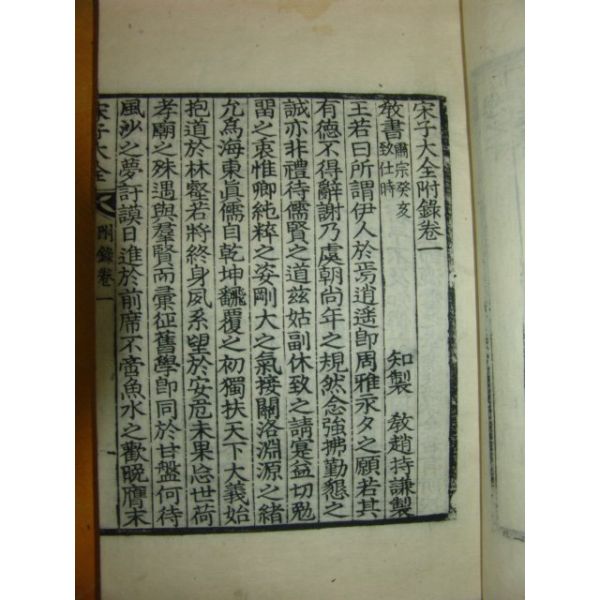 宋子大全附錄卷一
敎書 肅宗癸亥致仕時
知製 敎趙持謙製
王若曰所謂伊人於焉逍遥卽周雅永夕之願若其
有德不得辭謝乃虞朝尙年之規然念強拂勤懇之
誠亦非禮待儒賢之道玆姑副休致之請寔益切勉
留之衷惟卿純粹之姿剛大之氣接關洛淵源之緖
允爲海東眞儒自乾坤飜覆之初獨扶天下大義始
抱道於林壑若將終身夙系望於安危未果忘世荷
孝廟之殊遇與羣賢而彙征舊學卽同於甘盤何待
風沙之夢訏謨日進於前席不啻魚水之歡晩膺末
宋子大全 附錄卷一